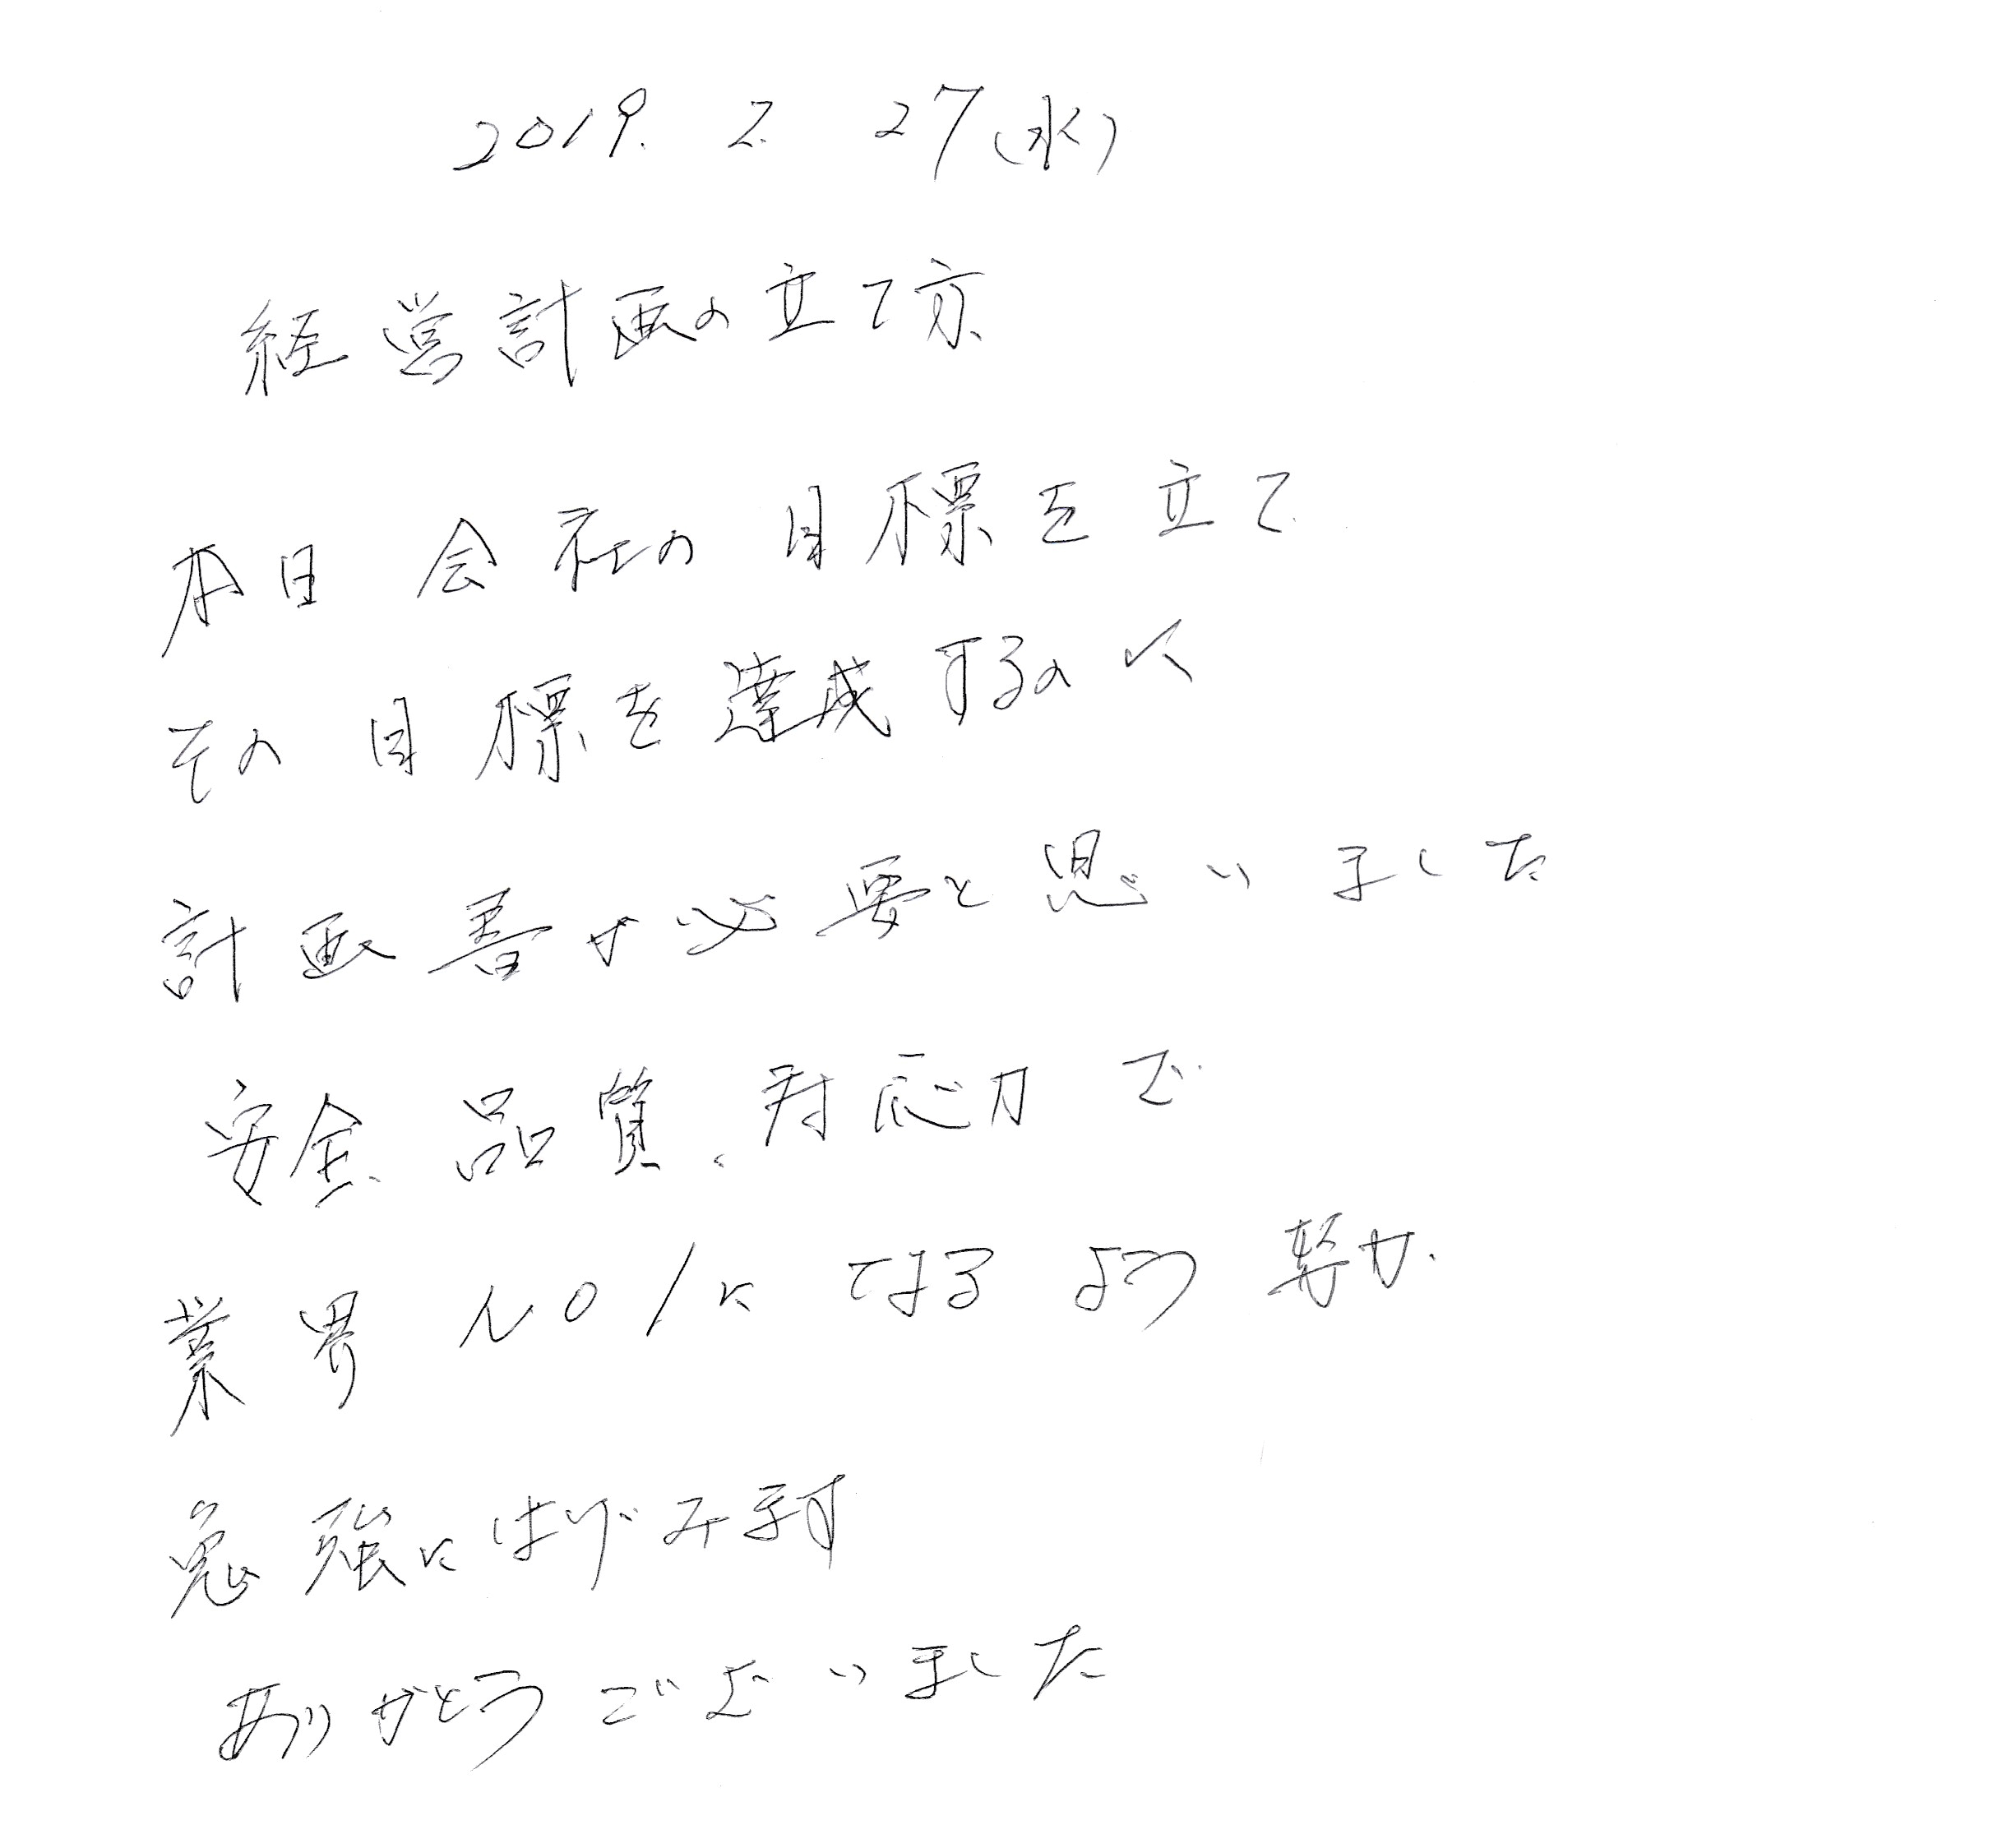 2019. 2. 27(水)
経営計画の立て方
本日 会社の目標を立て
その目標を達成するのに
計画書が必要と思いました
安全、品質、対応力で
業界NO1になるよう努力、
勉強にはげみます
ありがとうございました